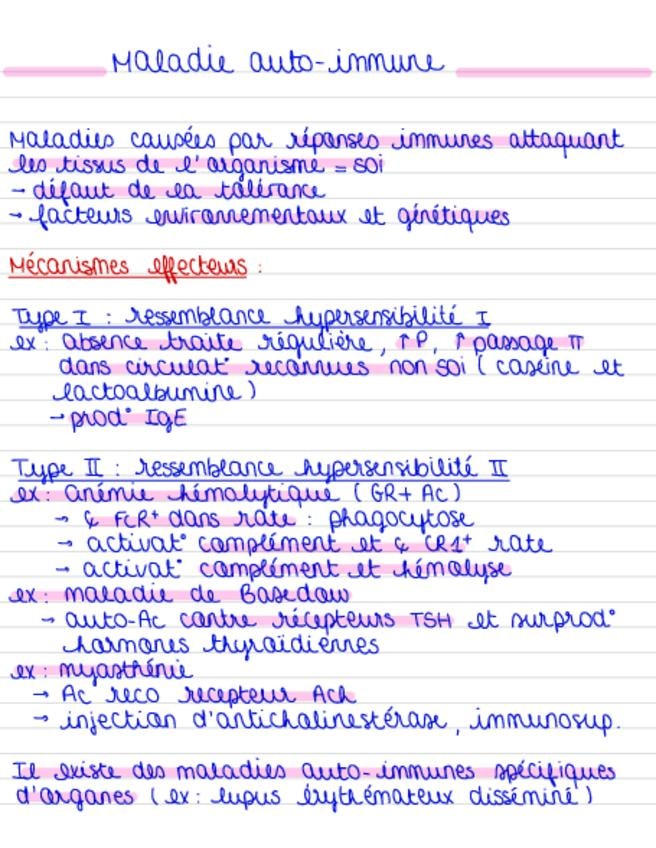 Maladie auto-immune
Maladies causées par réponses immunes attaquant
les tissus de l'organisme = soi
→ défaut de la tolérance
→ facteurs environnementaux et génétiques
Mécanismes effecteurs :
Type I : ressemblance hypersensibilité I
ex : absence traite régulière, ↑P, ↑ passage π
dans circulat° reconnues non soi (caséine et
lactoalbumine)
→ prod° IgE
Type II : ressemblance hypersensibilité II
ex : anémie hémolytique (GR+ Ac)
→ FcR⁺ dans rate : phagocytose
→ activat° complément et CR1⁺ rate
→ activat° complément et hémolyse
ex : maladie de Basedow
→ auto-Ac contre récepteurs TSH et surprod°
hormones thyroïdiennes
ex : myasthénie
→ Ac reco recepteur Ach
→ injection d'anticholinestérase, immunosup.
Il existe des maladies auto-immunes spécifiques
d'organes (ex : lupus érythémateux disséminé)